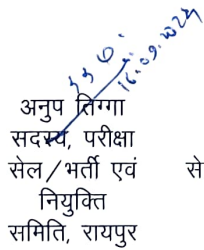 16.09.2024
अनुप तिग्गा
सदस्य, परीक्षा
सेल/भर्ती एवं से
नियुक्ति
समिति, रायपुर